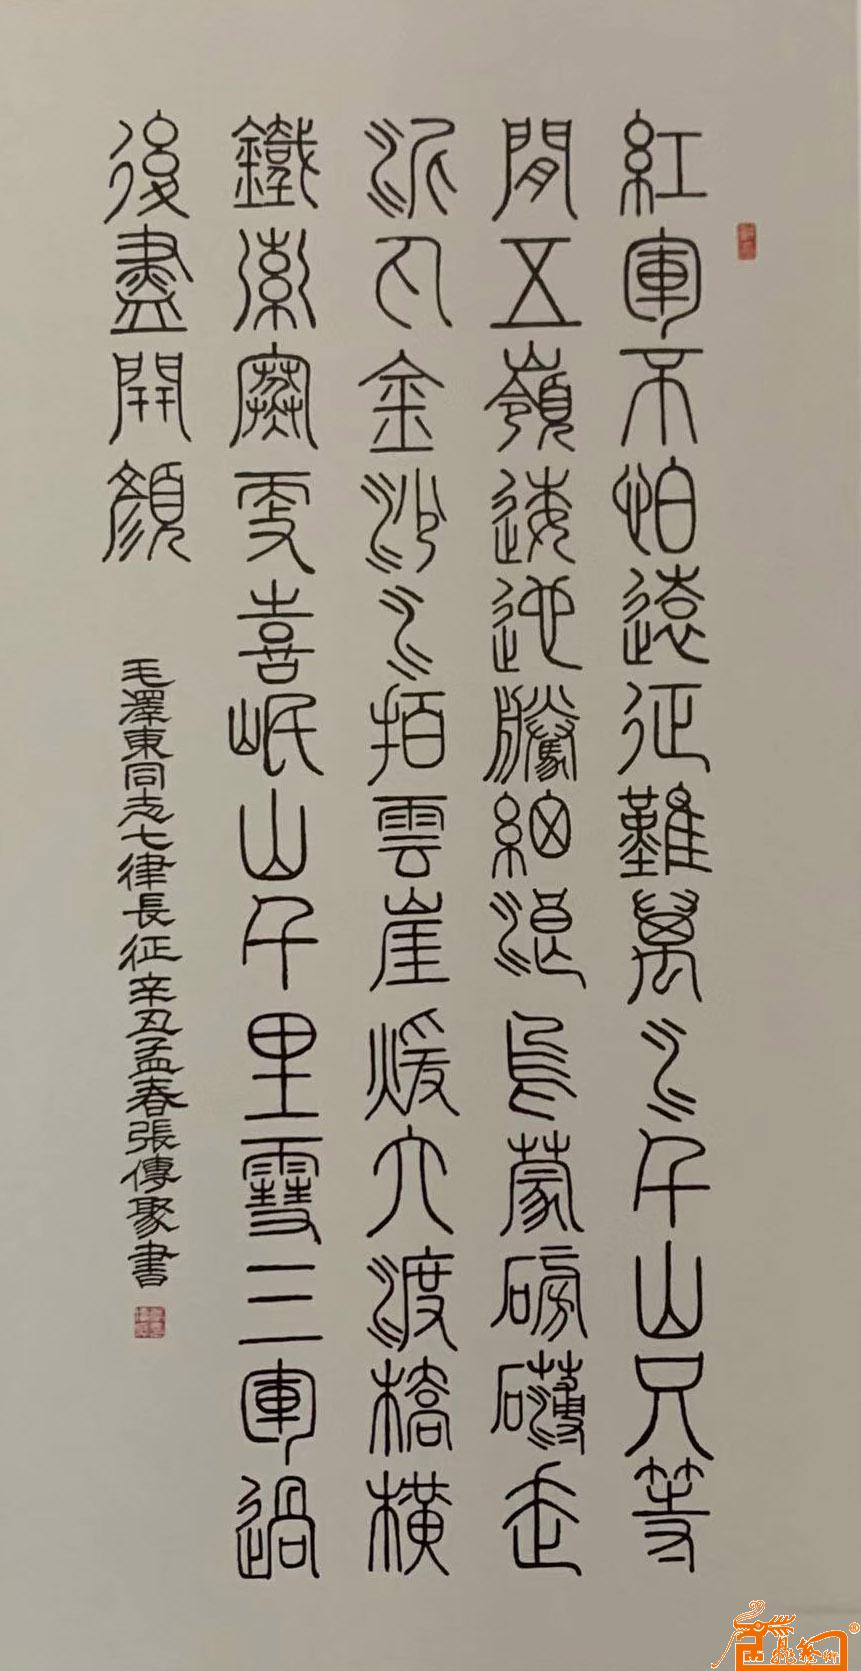 紅軍不怕遠征難萬水千山只等
閒五嶺逶迤騰細浪烏蒙磅礴走
泥丸金沙水拍雲崖煖大渡橋橫
鐵索寒更喜岷山千里雪三軍過
後盡開顏
毛澤東同志七律長征辛丑孟春張傳聚書